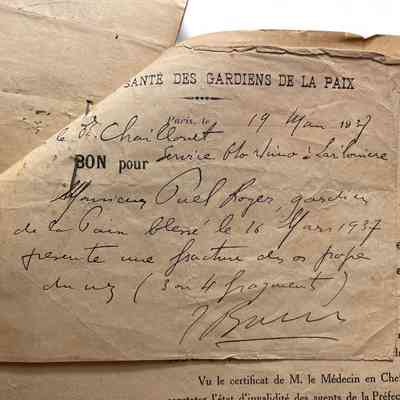 SANTÉ DES GARDIENS DE LA PAIX
Paris, le 19 Mars 1937
le Dr Chaillouet
BON pour Service Oto Rhino à Lariboisière
Monsieur Puel Roger, gardien
de la Paix blessé le 16 Mars 1937
présente une fracture des os propres
du nez (3 ou 4 fragments)
Vu le certificat de M. le Médecin en Chef
l'état d'invalidité des agents de la Préfec